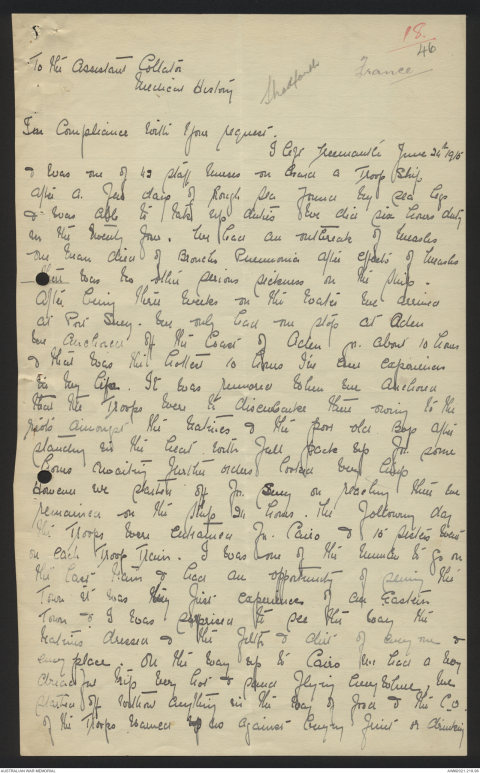 18.
46
To the Assistant Collator
Medical History
France
In Compliance with your request.
I left Freemantle June 24th 1915
& was one of 43 staff nurses on board a Troop Ship
after a few days of Rough sea found my sea legs
& was able to take up duties we did six hours duty
in the twenty four. We had an outbreak of measles
one man died of Broncho Pneumonia after effects of measles
there was no other serious sickness on the ship.
After being three weeks on the water we arrived
at Port Suey. We only had one stop at Aden
we anchored off the Coast of Aden for about 10 hours
& that was the hottest 10 hours I've ever experienced
in my life. It was rumoured when we anchored
that the Troops were to disembarke there owing to the
riots amongst the natives & the poor old Boys after
standing in the heat with full pack up for some
hours awaiting further orders looked very limp
However we started off for Suey on reaching there we
remained on the ship 24 hours. The following day
the Troops were entrained for Cairo & 10 sisters went
on each Troop Train. I was one of the number to go on
the last train & had an opportunity of seeing the
Town it was my first experience of an Eastern
Town & I was surprised to see the way the
natives dressed & the filth & dirt of every one &
every place. On the way up to Cairo we had a very
dreadful trip very hot & sand flying everywhere we
started off without anything in the way of food & the C.O.
of the Troops warned us against buying fruit or drinking
AUSTRALIAN WAR MEMORIAL